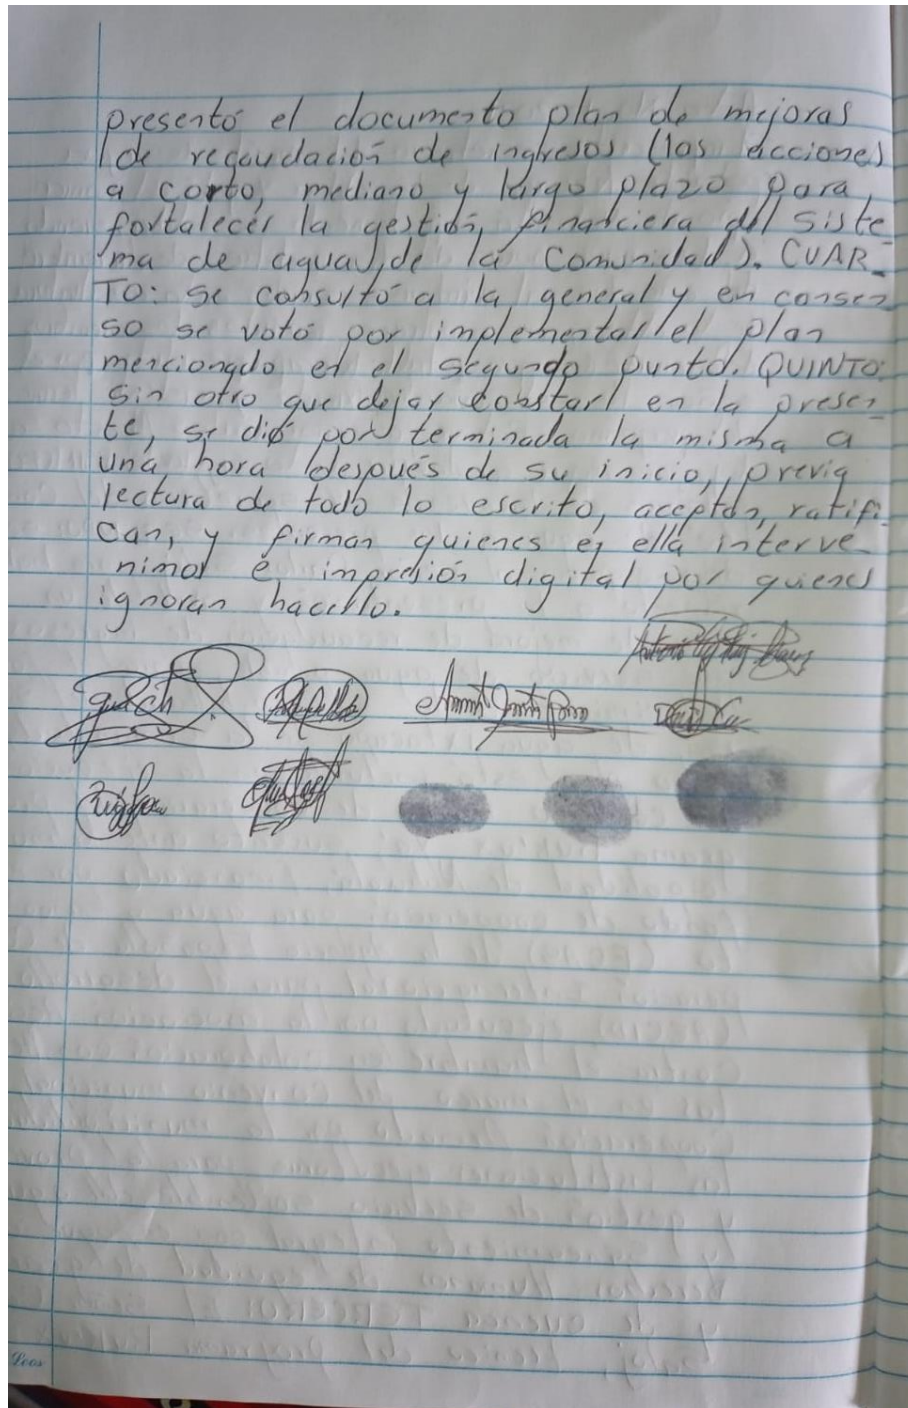 presentó el documento plan de mejoras
de recaudación de ingresos (las acciones
a corto, mediano y largo plazo para
fortalecer la gestión, financiera del siste-
ma de agua, de la Comunidad). CUAR-
TO: se consultó a la general y en consen-
so se votó por implementar el plan
mencionado en el segundo punto. QUINTO:
sin otro que dejar constar en la presen-
te, se dió por terminada la misma a
una hora después de su inicio, previa
lectura de todo lo escrito, aceptan, ratifi-
can, y firman quienes en ella interve-
nimos e impresión digital por quienes
ignoran hacerlo.